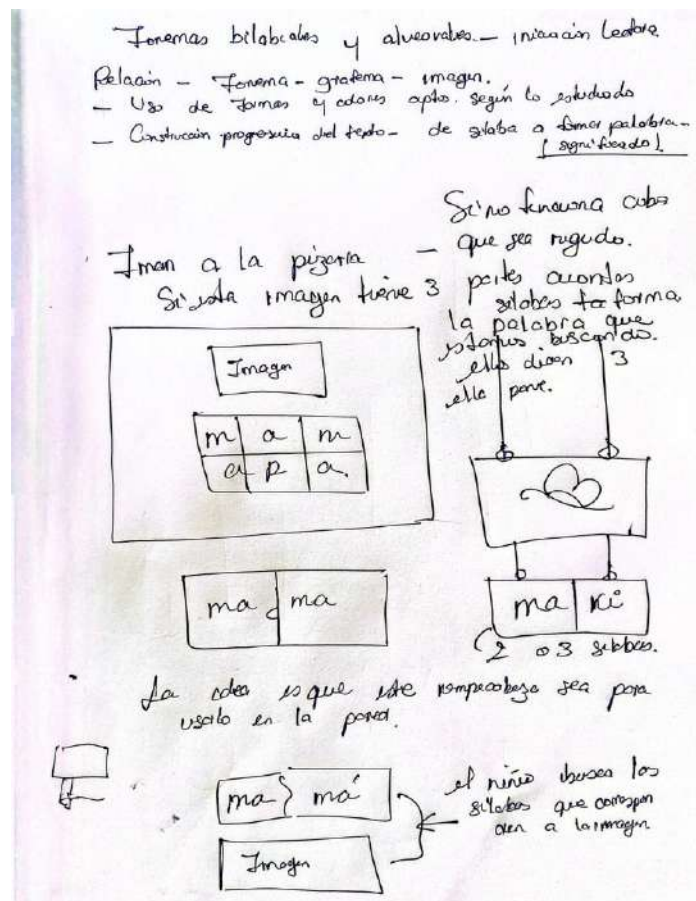 Fonemas bilabiales y alveorales – iniciación Lectora
Relación – Fonema – grafema – imagen.
– Uso de formas y colores apto. según lo estudiado
– Construcción progresiva del texto – de sílaba a formar palabra –
(significado).
Si no funciona cubo
– que sea rugudo.
Iman a la pizarra
Si esta imagen tiene 3 partes
sílabas forma
la palabra que
estamos buscando.
ellos dicen 3
ella pone.
Imagen
m a m
a p a.
ma ma
ma ri
2 o 3 sílabas.
La idea es que este rompecabeza sea para
usarlo en la pared.
ma má
Imagen
el niño busca las
sílabas que correspon
den a la imagen